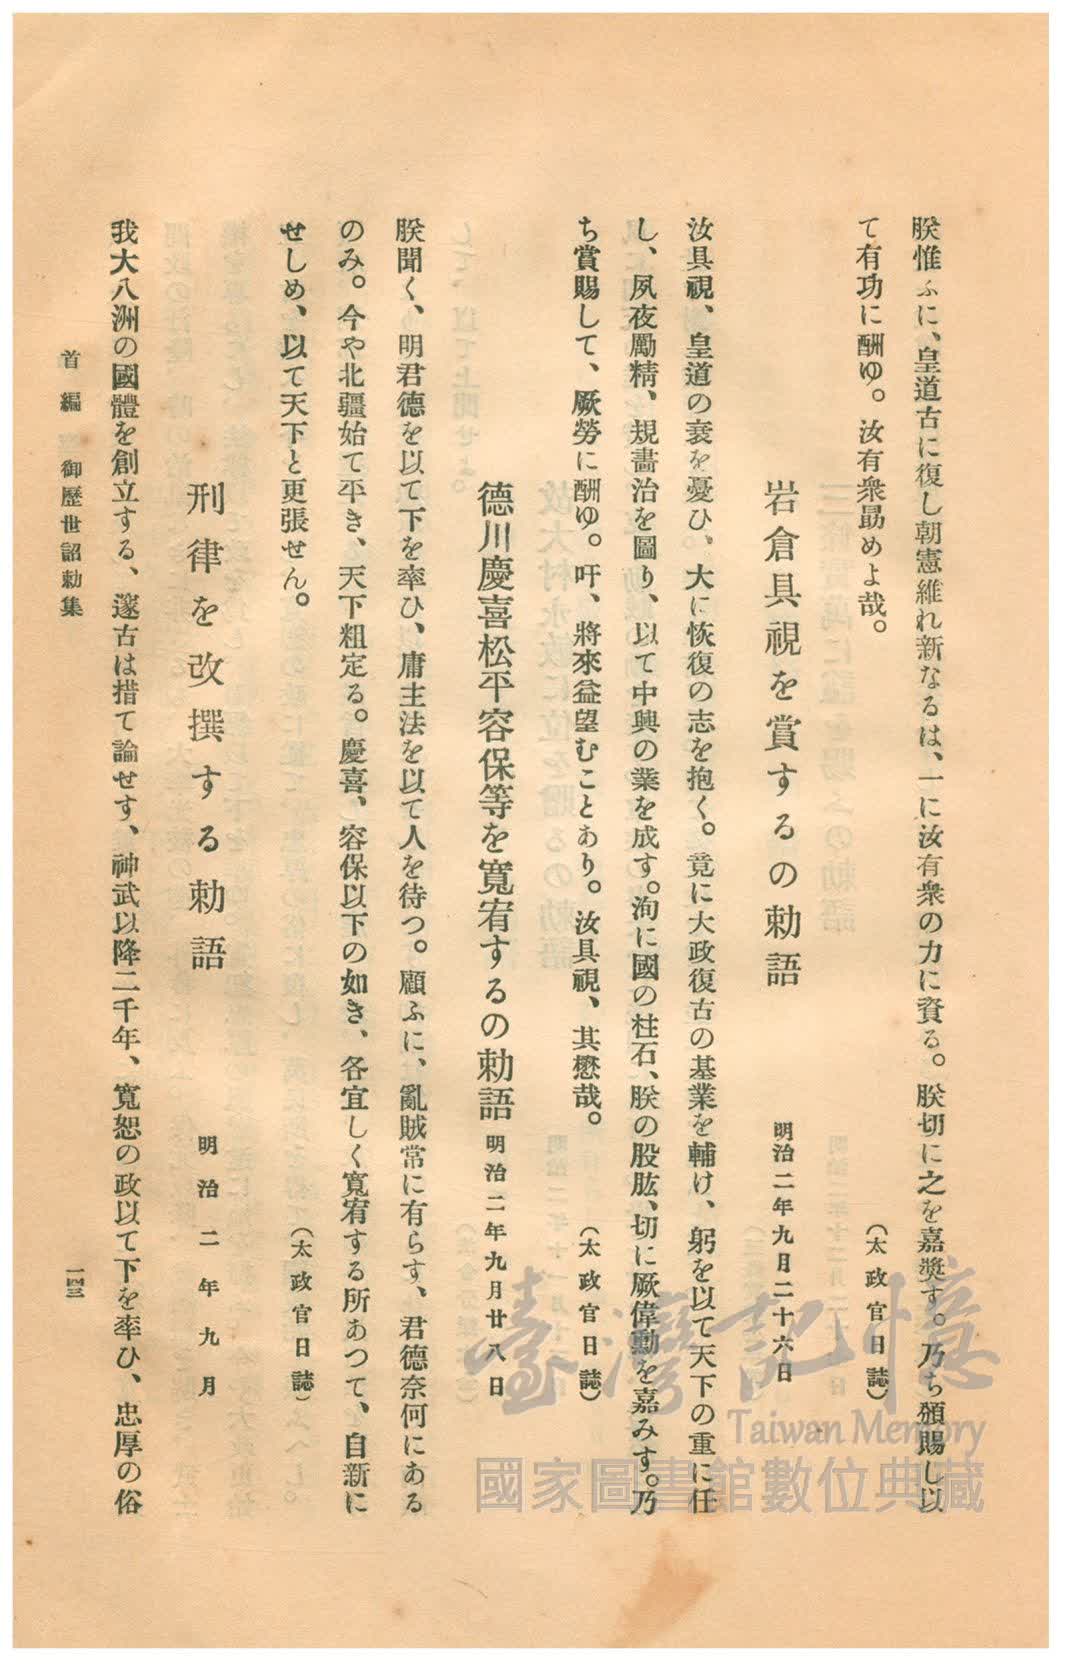 朕惟ふに、皇道古に復し朝憲維れ新なるは、一に汝有衆の力に資る。朕切に之を嘉奬す。乃ち頒賜し以
て有功に酬ゆ。汝有衆勗めよ哉。
（太政官日誌）
岩倉具視を賞するの勅語
明治二年九月二十六日
汝具視、皇道の衰を憂ひ、大に恢復の志を抱く。竟に大政復古の基業を輔け、躬を以て天下の重に任
し、夙夜勵精、規畫治を圖り、以て中興の業を成す。洵に國の柱石、朕の股肱、切に厥偉勳を嘉みす。乃
ち賞賜して、厥勞に酬ゆ。吁、將來益望むことあり。汝具視、其懋哉。
（太政官日誌）
德川慶喜松平容保等を寬宥するの勅語
明治二年九月廿八日
朕聞く、明君德を以て下を率ひ、庸主法を以て人を待つ。顧ふに、亂賊常に有らす、君德奈何にある
のみ。今や北疆始て平き、天下粗定る。慶喜、容保以下の如き、各宜しく寬宥する所あつて、自新に
せしめ、以て天下と更張せん。
（太政官日誌）
刑律を改撰する勅語
明治二年九月
我大八洲の國體を創立する、邃古は措て論せす、神武以降二千年、寬恕の政以て下を率ひ、忠厚の俗
首編 御歷世詔勅集
一四三
臺灣記憶
Taiwan Memory
國家圖書館數位典藏